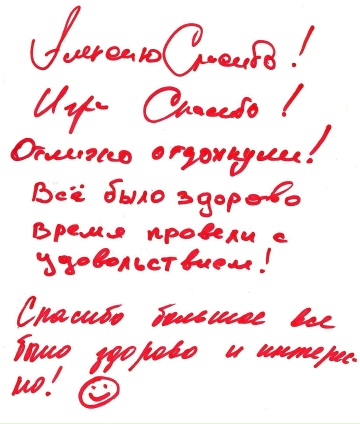 Спасибо!
Игра Спасибо!
Отлично отдохнули!
Всё было здорово
время провели с
удовольствием!
Спасибо большое все
было здорово и интерес-
но!